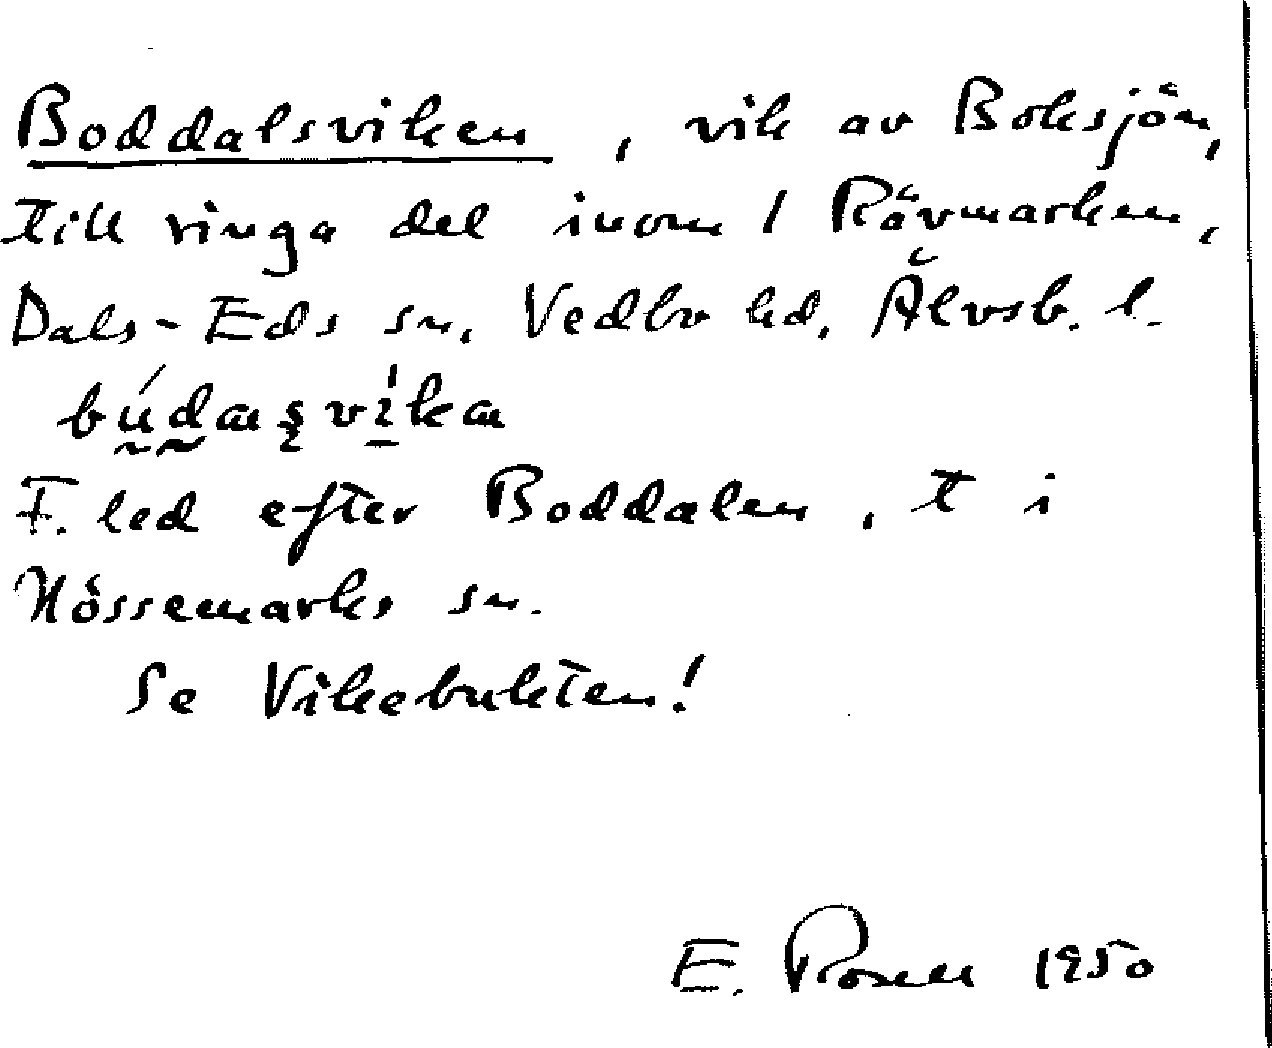 Boddalsviken, vik av Boksjön,
till ringa del inom 1 Rävmarken,
Dals-Eds sn, Vedbo hd, Älvsb. l.
F. led efter Boddalen, t i
Nössemarks sn.
Se Vikebukten!
E. Rosell 1950